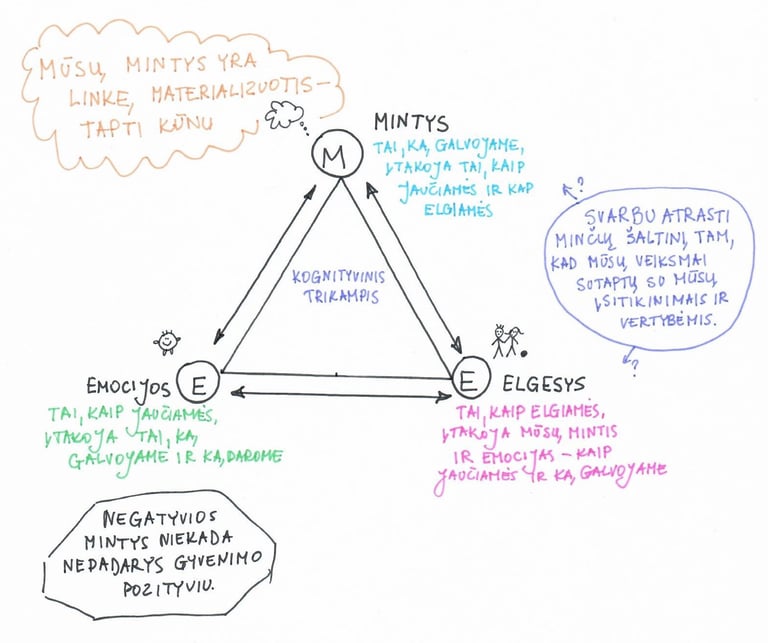 MŪSŲ MINTYS YRA
LINKĘ MATERIALIZUOTIS -
TAPTI KŪNU
MINTYS
M
TAI, KĄ GALVOJAME,
ĮTAKOJA TAI, KAIP
JAUČIAMĖS IR KAP
ELGIAMĖS
?
SVARBU ATRASTI
MINČIŲ ŠALTINĮ TAM,
KAD MŪSŲ VEIKSMAI
SUTAPTŲ SU MŪSŲ
ĮSITIKINIMAIS IR
VERTYBĖMIS.
?
KOGNITYVINIS
TRIKAMPIS
EMOCIJOS E
TAI, KAIP JAUČIAMĖS,
ĮTAKOJA TAI, KĄ
GALVOJAME IR KĄ DAROME
E ELGESYS
TAI, KAIP ELGIAMĖS,
ĮTAKOJA MŪSŲ MINTIS
IR EMOCIJAS - KAIP
JAUČIAMĖS IR KĄ GALVOJAME
NEGATYVIOS
MINTYS NIEKADA
NEPADARYS GYVENIMO
POZITYVIU.